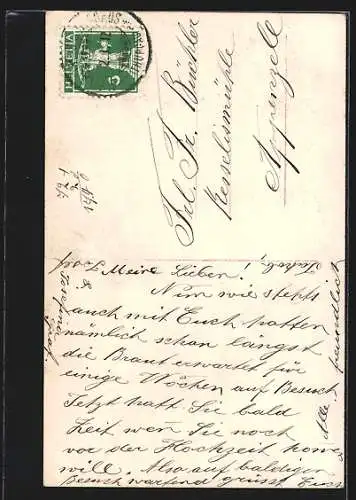 HELVETIA
5
Frl. Fr. Büchler
Kesselismühle
Appenzell
Meine Lieben!
Nun wie stehts
auch mit Euch hatten
nämlich schon längst
die Braut erwartet für
einige Wochen auf Besuch
Jetzt hatt Sie bald
Zeit wen Sie noch
vor der Hochzeit kommen
will. Also auf baldigen
Besuch wartend grüsst Euch
Alle freundlich
Jakob,